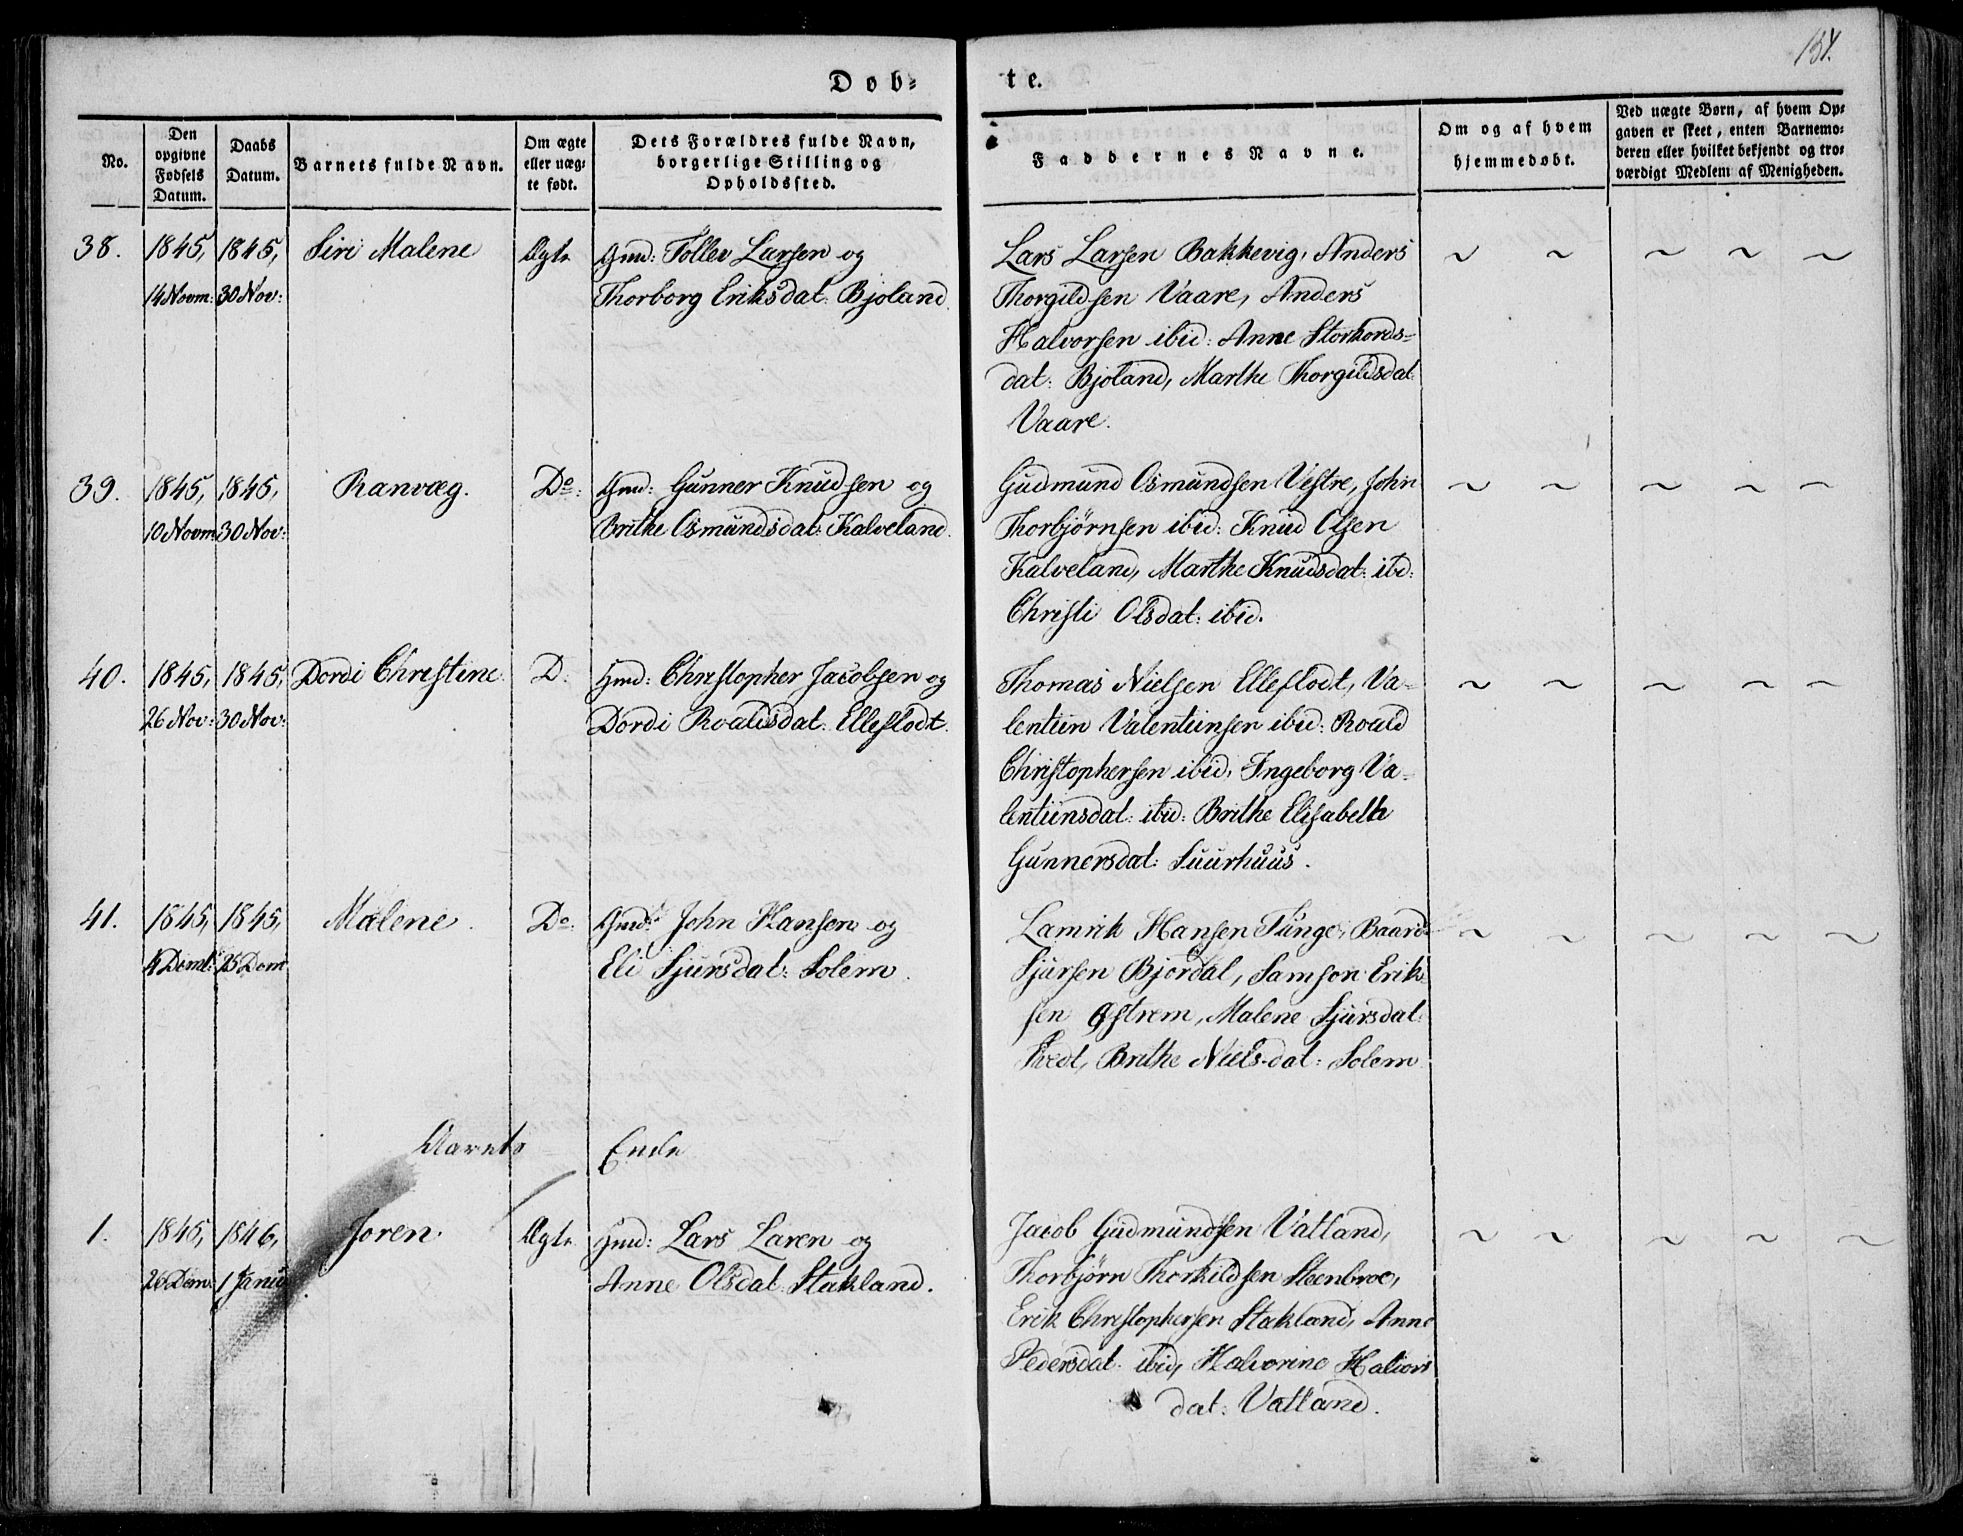 Døb-
te.
134.
No.
Den opgivne Fødsels Datum.
Daabs Datum.
Barnets fulde Navn.
Om ægte eller uægte født.
Dets Forældres fulde Navn, borgerlige Stilling og Opholdssted.
Faddernes Navne.
Om og af hvem hjemmedøbt.
Ved uægte Børn, af hvem Opgaven er skeet, enten Barnemoderen eller hvilket bekjendt og troværdigt Medlem af Menigheden.
38. 1845, 1845, Siri Malene Ægte Gmd: Tollev Larsen og
14 Novm: 30 Nov: Thorborg Eriksdat: Bjoland
Lars Larsen Bakkevig, Anders
Thorgildsen Vaare, Anders
Halvorsen ibid: Anne Storkors-
dat: Bjoland, Marthe Thorgildsdat
Vaare.
39. 1845, 1845, Ranvæg. Do: Gmd: Gunner Knudsen og
10 Novm 30 Nov: Brithe Osmundsdat: Kalveland.
Gudmund Osmundsen Vestre, John
Thorbjørnsen ibid: Knud Olsen
Kalveland, Marthe Knudsdat: ibd:
Christi Olsdat: ibid.
40. 1845, 1845, Dordi Christine. D: Hmd: Christopher Jacobsen og
26 Nov: 30 Nov: Dordi Roaldsdat: Elleflodt.
Thomas Nielsen Elleflodt, Va-
lentin Valentinsen ibid: Roald
Christophersen ibid, Ingeborg Va-
lentinsdat: ibid: Brithe Elisabeth
Gunnersdat: Suurhuus.
41. 1845, 1845, Malene. Do: Gmd: John Hansen og
4 Demb: 25 Dem Eli Sjursdat: Solem.
Lamrik Hansen Tunge, Baard
Sjursen Bjordal, Samson Erik-
sen Østrem, Malene Sjursdat:
Tvedt, Brithe Nielsdat: Solem
Aarets Ende
1. 1845, 1846, Joren. Ægte Hmd: Lars Laren og
26 Dem: 1 Janu Anne Olsdat: Stakland.
Jacob Gudmundsen Vatland,
Thorbjørn Thorkildsen Steenbroe,
Erik Christophersen Stakland, Anne
Pedersdat: ibid, Halvorine Halvors
dat: Vatland.